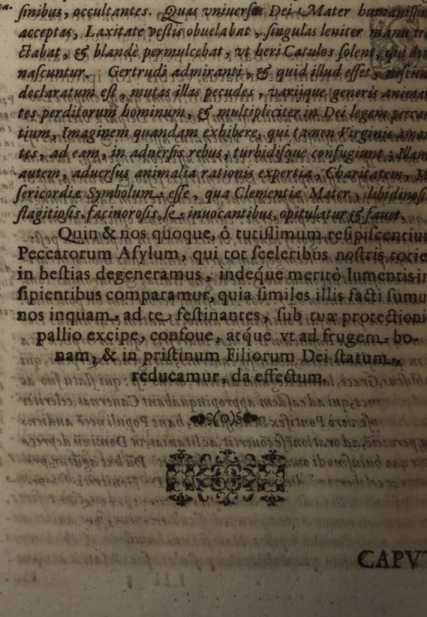 sinibus, occultantes. Quas vniuersas Dei Mater humaniss
acceptas, Laxitate vestis obuelabat, singulas leniter manu tr
ctabat, & blandè permulcebat, vt heri Catulos solent, qui
nascuntur. Gertrudi admiranti, & quid illud esset,
declaratum est, mutas illas pecudes, varijque generis animan
tes perditorum hominum, & multipliciter in Dei legem peccan
tium, Imaginem quandam exhibere, qui tamen Virginis aman
tes, ad eam, in aduersis rebus, turbidisque confugiant. Illam
autem, aduersus animalia rationis expertia, Charitatem, M
sericordiæ Symbolum esse, qua Clementiæ Mater, libidinosis
flagitiosis, facinorosis, se inuocantibus, opitulatur & fauet.
Quin & nos quoque, ò tutissimum resipiscentiu
Peccatorum Asylum, qui tot sceleribus nostris totie
in bestias degeneramus, indeque meritò Iumentis in
sipientibus comparamur, quia similes illis facti sumu
nos inquam, ad te festinantes, sub tuæ protectioni
pallio excipe, confoue, atque vt ad frugem bo-
nam, & in pristinum Filiorum Dei statum
reducamur, da effectum.
CAPVT